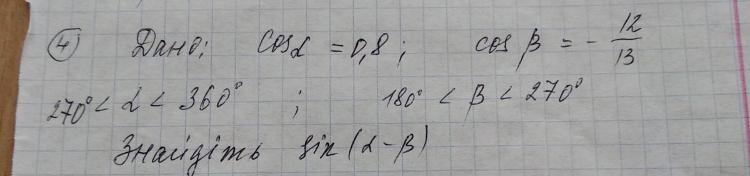 ④ Дано: cosα = 0,8; cos β = - 12/13
270° < α < 360° ; 180° < β < 270°
Знайдіть sin(α-β)